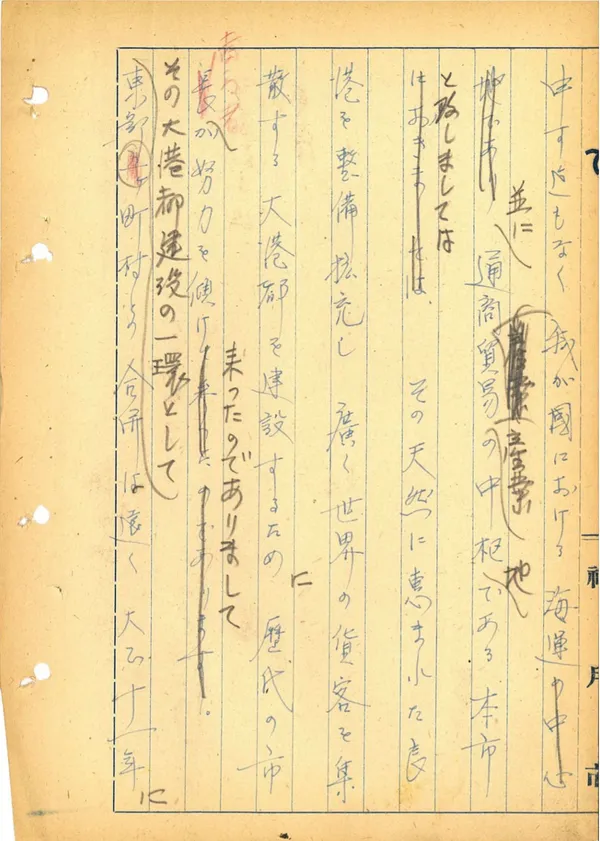 申す迄もなく我が國における海運の中心
並に産業
地であり通商貿易の中枢である本市
地
と致しましては
におきましては、その天然に恵まれた良
港を整備拡充し廣く世界の貨客を集
散する大港都を建設するため歴代の市
に
長が努力を傾けて来たのであります。
来ったのでありまして
その大港都建設の一環として
東部 町村の合併は遠く大正十一年
に
神戸市